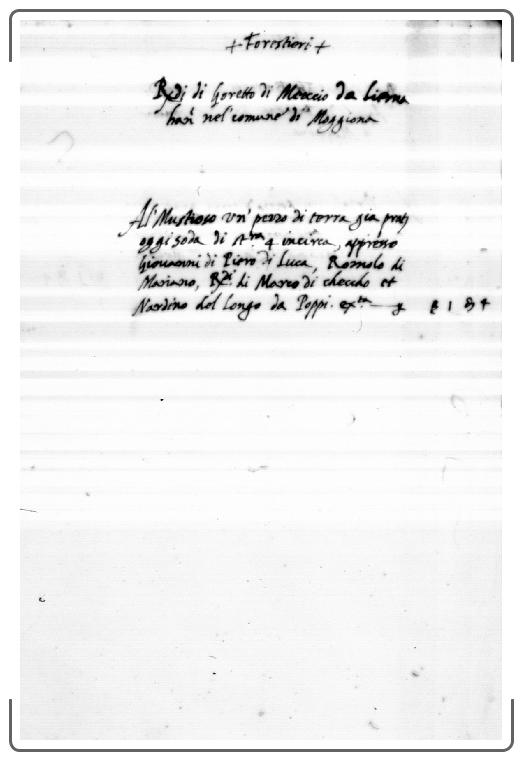 + Forestieri +
Rdi di Goretto di Meoccio da Lierna
hanⁱ nel comune di Moggiona
Al Mustioso un' pezzo di terra gia prati
oggi soda di st.ra 4 incirca, appresso
Giovanni di Piero di Luca, Romolo di
Mariano, Rdi. di Marco di checcho et
Nardino del longo da Poppi. ex.ta